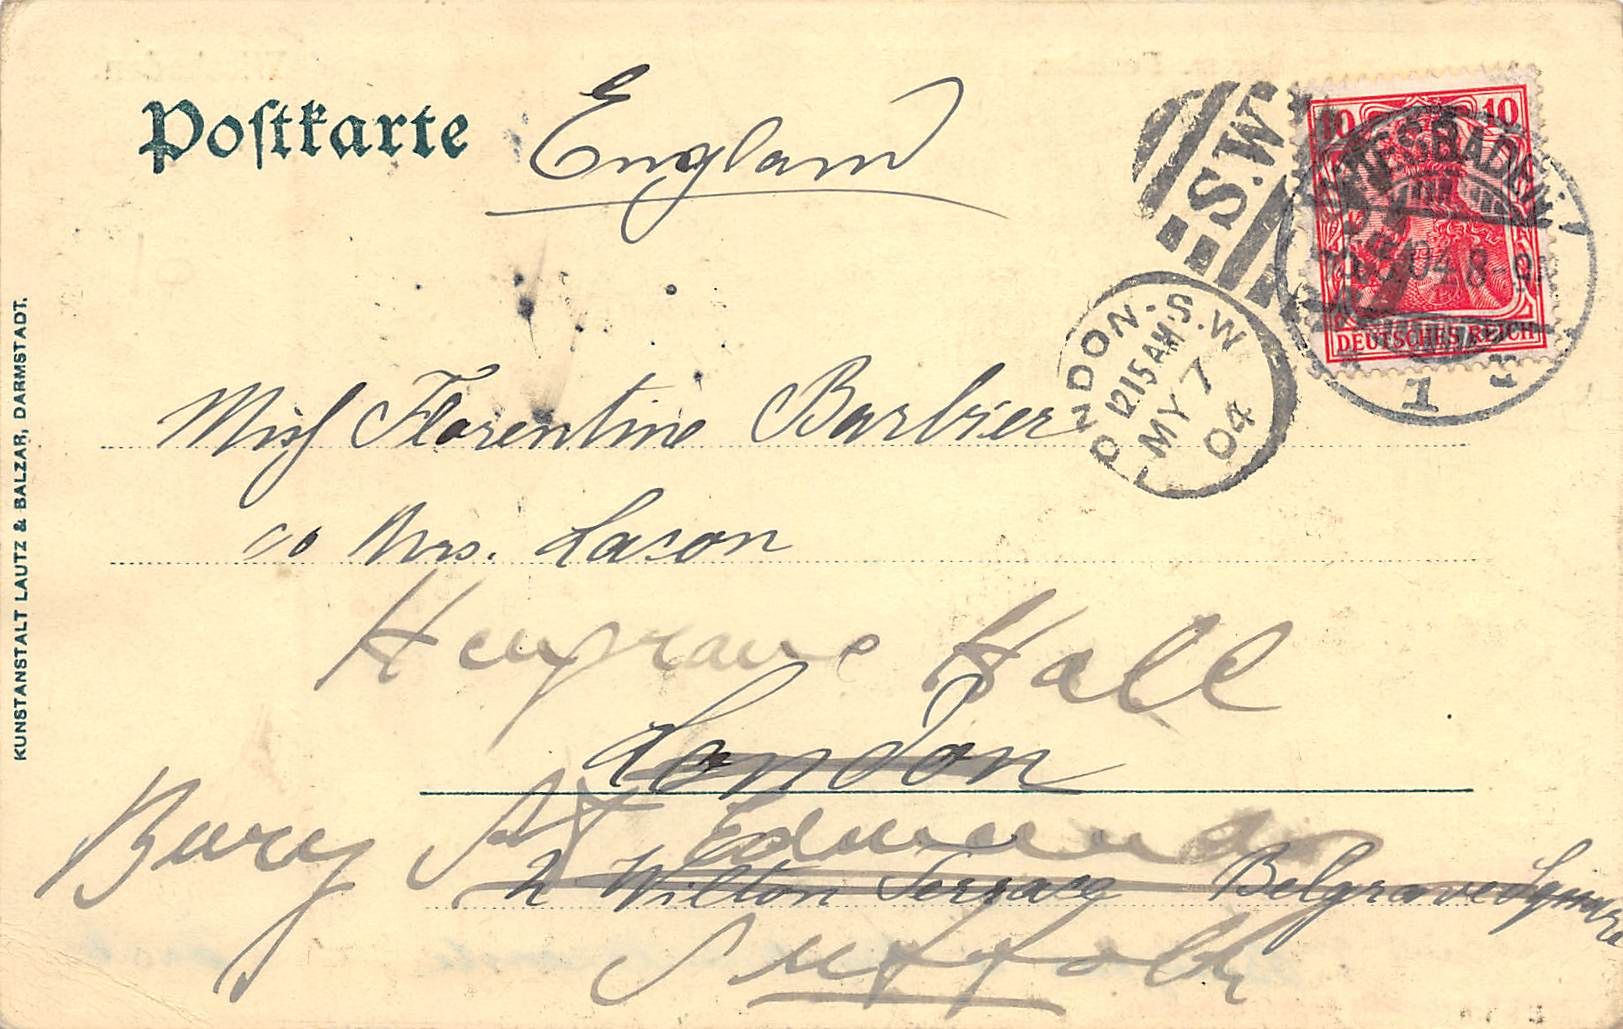 Poſtkarte
England
S.W
10 10
WIESBADEN
04. 8-9
DEUTSCHES REICH
1
LONDON. S.W
12.15 AM
MY 7
04
Miss Florentine Barbier
c/o Mrs. Lacon
Hengrave Hall
London
Bury St Edmunds
2 Wilton Terrace Belgrave Square
Suffolk
KUNSTANSTALT LAUTZ & BALZAR, DARMSTADT.